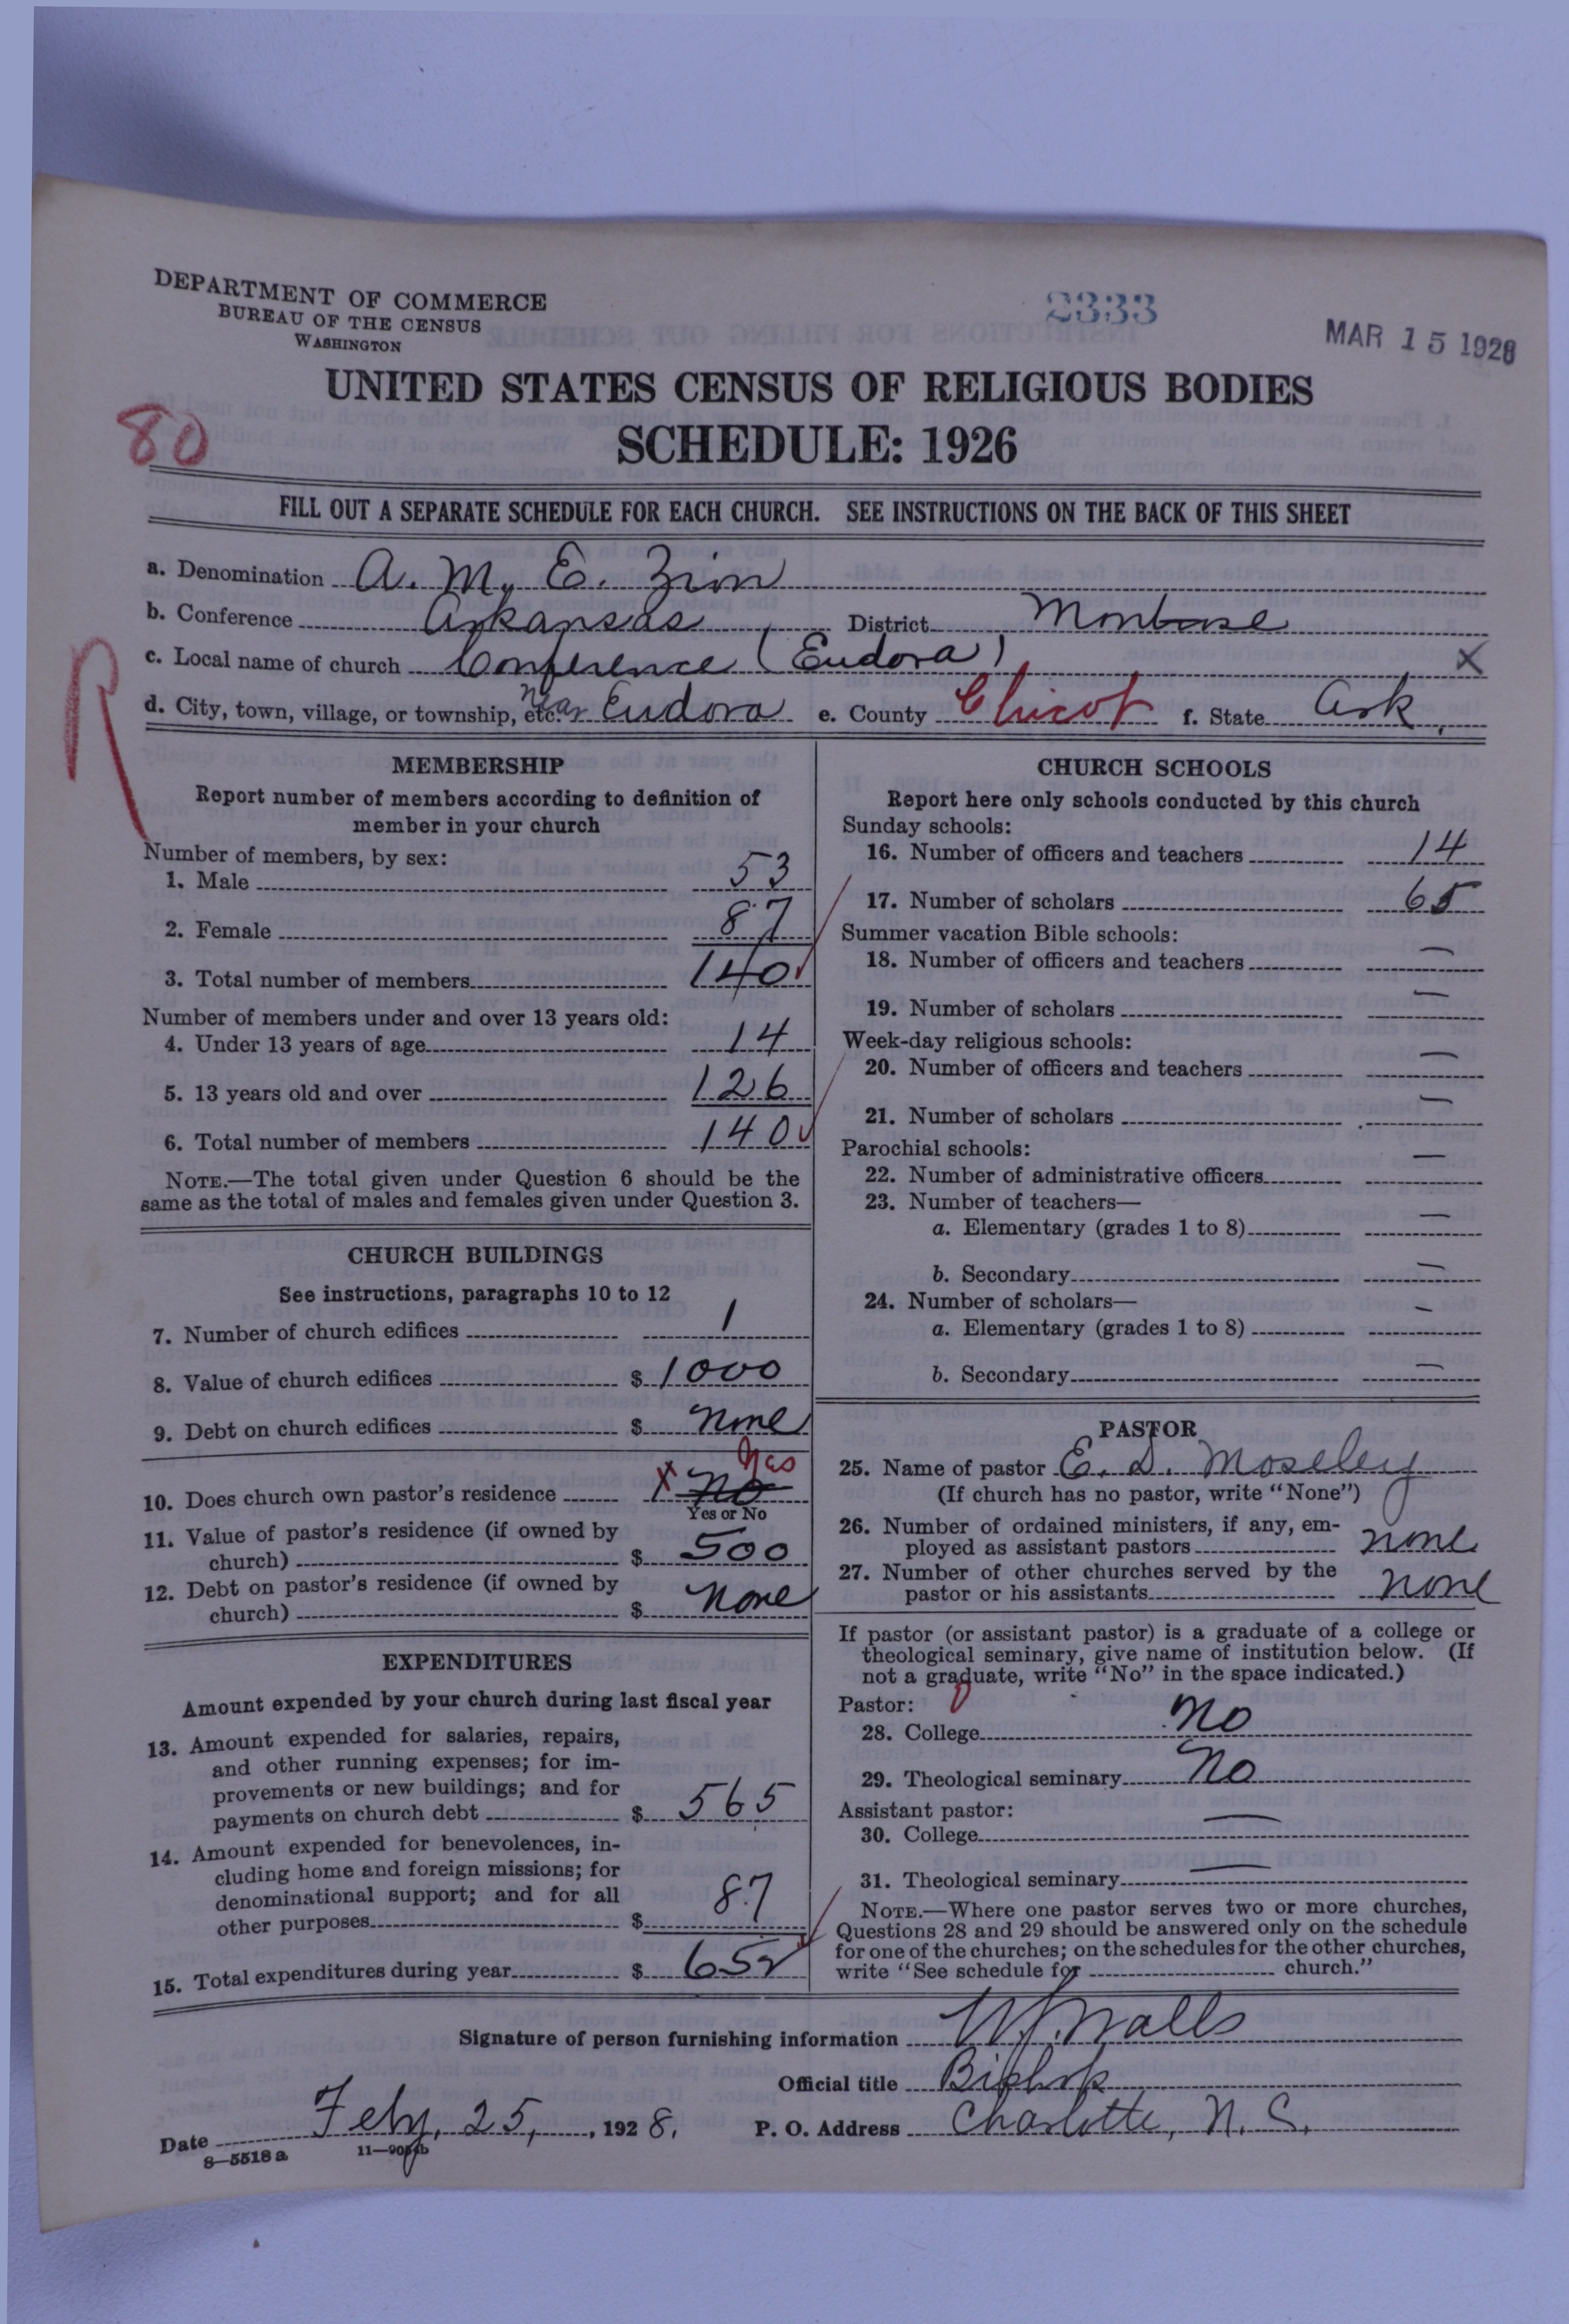 DEPARTMENT OF COMMERCE
BUREAU OF THE CENSUS
WASHINGTON
2333
MAR 15 1928
UNITED STATES CENSUS OF RELIGIOUS BODIES
SCHEDULE: 1926
80
FILL OUT A SEPARATE SCHEDULE FOR EACH CHURCH. SEE INSTRUCTIONS ON THE BACK OF THIS SHEET
a. Denomination A. M. E. Zion
b. Conference Arkansas District Montrose
c. Local name of church Conference (Eudora) X
d. City, town, village, or township, etc. Near Eudora e. County Chicot f. State Ark.
R
MEMBERSHIP
Report number of members according to definition of
member in your church
Number of members, by sex:
1. Male 53
2. Female 87
3. Total number of members 140
Number of members under and over 13 years old:
4. Under 13 years of age 14
5. 13 years old and over 126
6. Total number of members 140
NOTE.—The total given under Question 6 should be the
same as the total of males and females given under Question 3.
CHURCH BUILDINGS
See instructions, paragraphs 10 to 12
7. Number of church edifices 1
8. Value of church edifices $ 1000
9. Debt on church edifices $ None
10. Does church own pastor's residence X No Yes
Yes or No
11. Value of pastor's residence (if owned by
church) $ 500
12. Debt on pastor's residence (if owned by
church) $ None
EXPENDITURES
Amount expended by your church during last fiscal year
13. Amount expended for salaries, repairs,
and other running expenses; for im-
provements or new buildings; and for
payments on church debt $ 565
14. Amount expended for benevolences, in-
cluding home and foreign missions; for
denominational support; and for all
other purposes $ 87
15. Total expenditures during year $ 652
CHURCH SCHOOLS
Report here only schools conducted by this church
Sunday schools:
16. Number of officers and teachers 14
17. Number of scholars 65
Summer vacation Bible schools:
18. Number of officers and teachers —
19. Number of scholars —
Week-day religious schools:
20. Number of officers and teachers —
21. Number of scholars —
Parochial schools:
22. Number of administrative officers —
23. Number of teachers—
a. Elementary (grades 1 to 8) —
b. Secondary —
24. Number of scholars—
a. Elementary (grades 1 to 8) —
b. Secondary —
PASTOR
25. Name of pastor E. D. Moseley
(If church has no pastor, write "None")
26. Number of ordained ministers, if any, em-
ployed as assistant pastors none
27. Number of other churches served by the
pastor or his assistants none
If pastor (or assistant pastor) is a graduate of a college or
theological seminary, give name of institution below. (If
not a graduate, write "No" in the space indicated.)
Pastor: 0
28. College No
29. Theological seminary No
Assistant pastor:
30. College —
31. Theological seminary —
NOTE.—Where one pastor serves two or more churches,
Questions 28 and 29 should be answered only on the schedule
for one of the churches; on the schedules for the other churches,
write "See schedule for church."
Signature of person furnishing information W. J. Walls
Official title Bishop
Date Feby. 25, 1928. P. O. Address Charlotte, N. C.
8—5518a 11—9051b